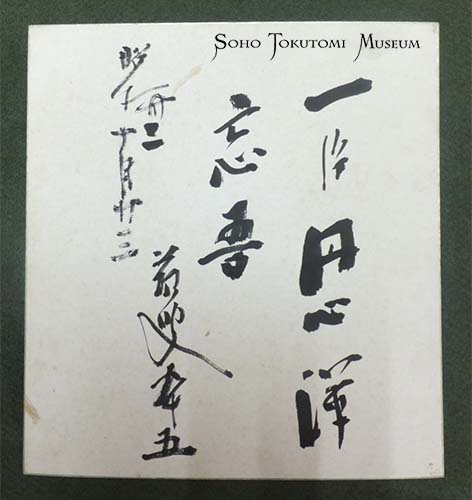 SOHO TOKUTOMI MUSEUM
一片丹心渾
忘吾
昭和卅二十月廿三
蘇叟卆五